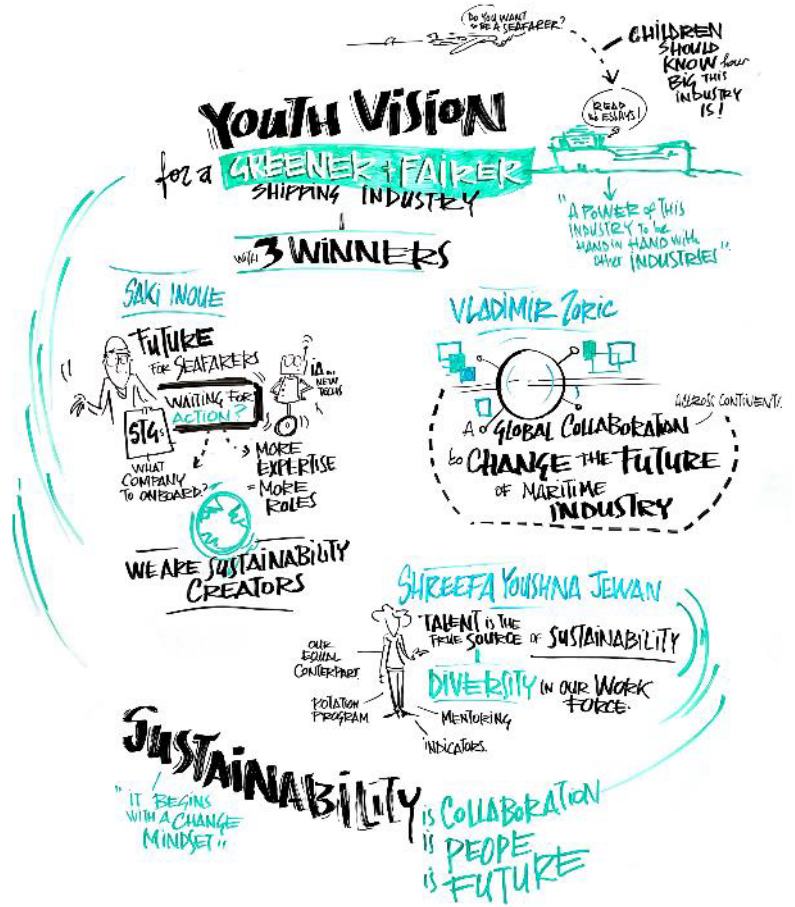 DO YOU WANT
to BE A SEAFARER?
CHILDREN
SHOULD
KNOW how
BIG THIS
INDUSTRY
IS!
READ
the ESSAYS!
YOUTH VISION
for a GREENER + FAIRER
SHIPPING INDUSTRY
with 3 WINNERS
"A POWER of THIS
INDUSTRY to be
HAND IN HAND with
other INDUSTRIES"
SAKI INOUE
FUTURE
FOR SEAFARERS
WAITING FOR
ACTION?
STGs
WHAT
COMPANY
TO ONBOARD?
IA...
NEW
TECHS
MORE
EXPERTISE
= MORE
ROLES
WE ARE SUSTAINABILITY
CREATORS
VLADIMIR ZORIC
ACROSS CONTINENTS
A GLOBAL COLLABORATION
to CHANGE THE FUTURE
OF MARITIME
INDUSTRY
SHREEFA YOUSHNA JEWAN
TALENT is THE
TRUE SOURCE OF SUSTAINABILITY
DIVERSITY IN OUR WORK
FORCE.
OUR
EQUAL
CONTERPART
ROTATION
PROGRAM
MENTORING
INDICATORS.
SUSTAINABILITY
"IT BEGINS
WITH A CHANGE
MINDSET"
is COLLABORATION
is PEOPE
is FUTURE